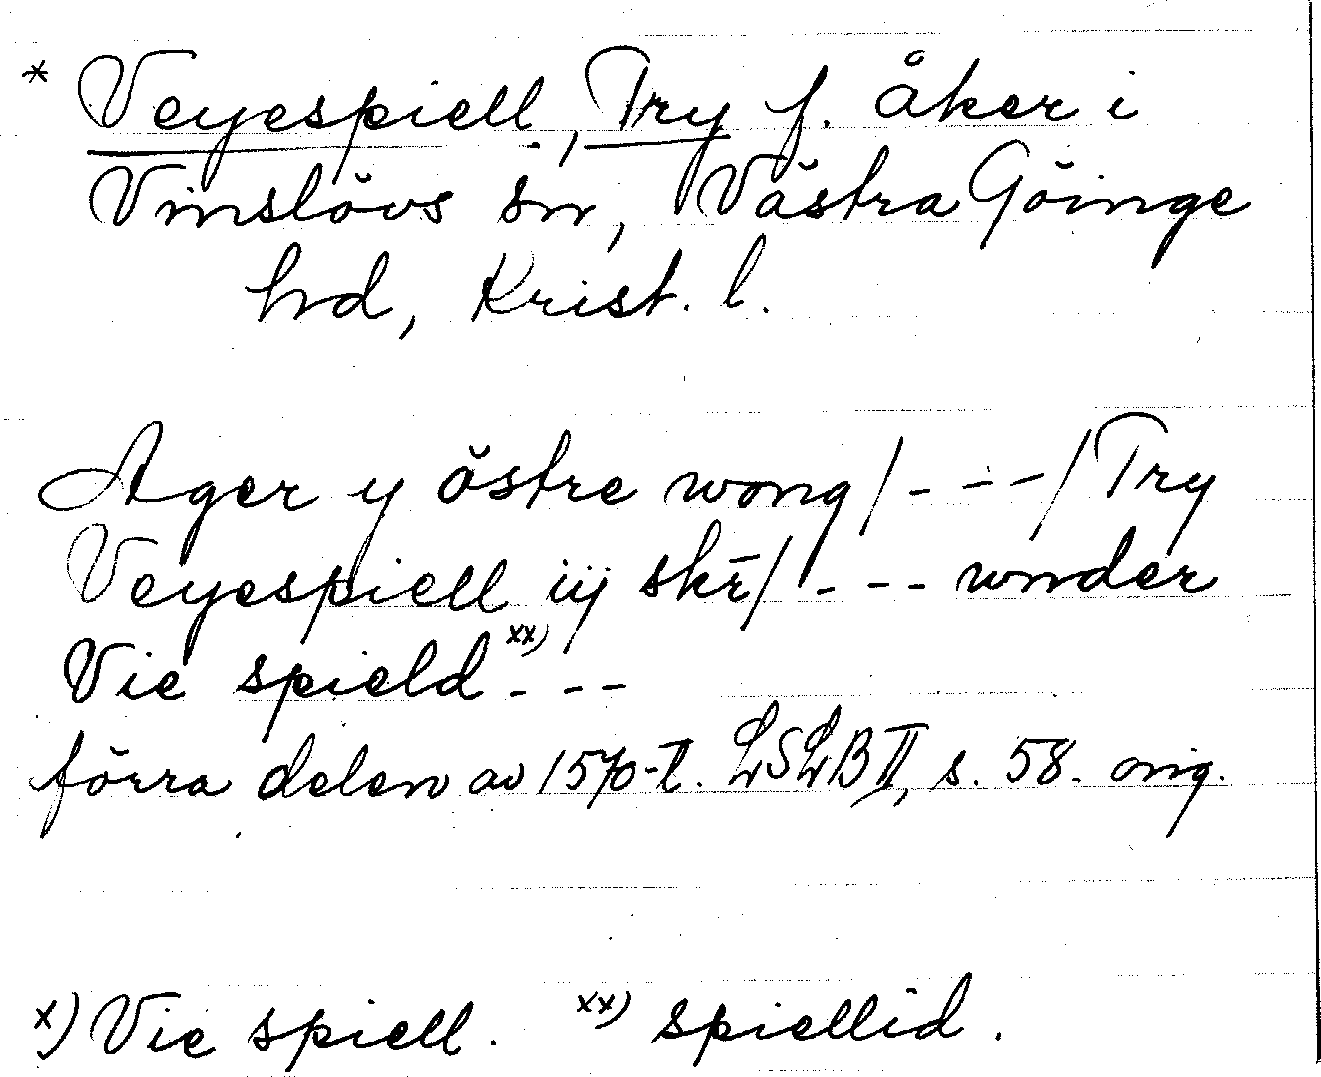 * Veyespiell, Try f. åker i
Vinslövs sn, Västra Göinge
hd, Krist. l.
Ager y östre wong /- - -/ Try
Veyespiell iij skr̄/ - - - wnder
Vie spield xx) - - -
förra delen av 1570-t. LSLB II, s. 58. orig.
x) Vie spiell. xx) spiellid.